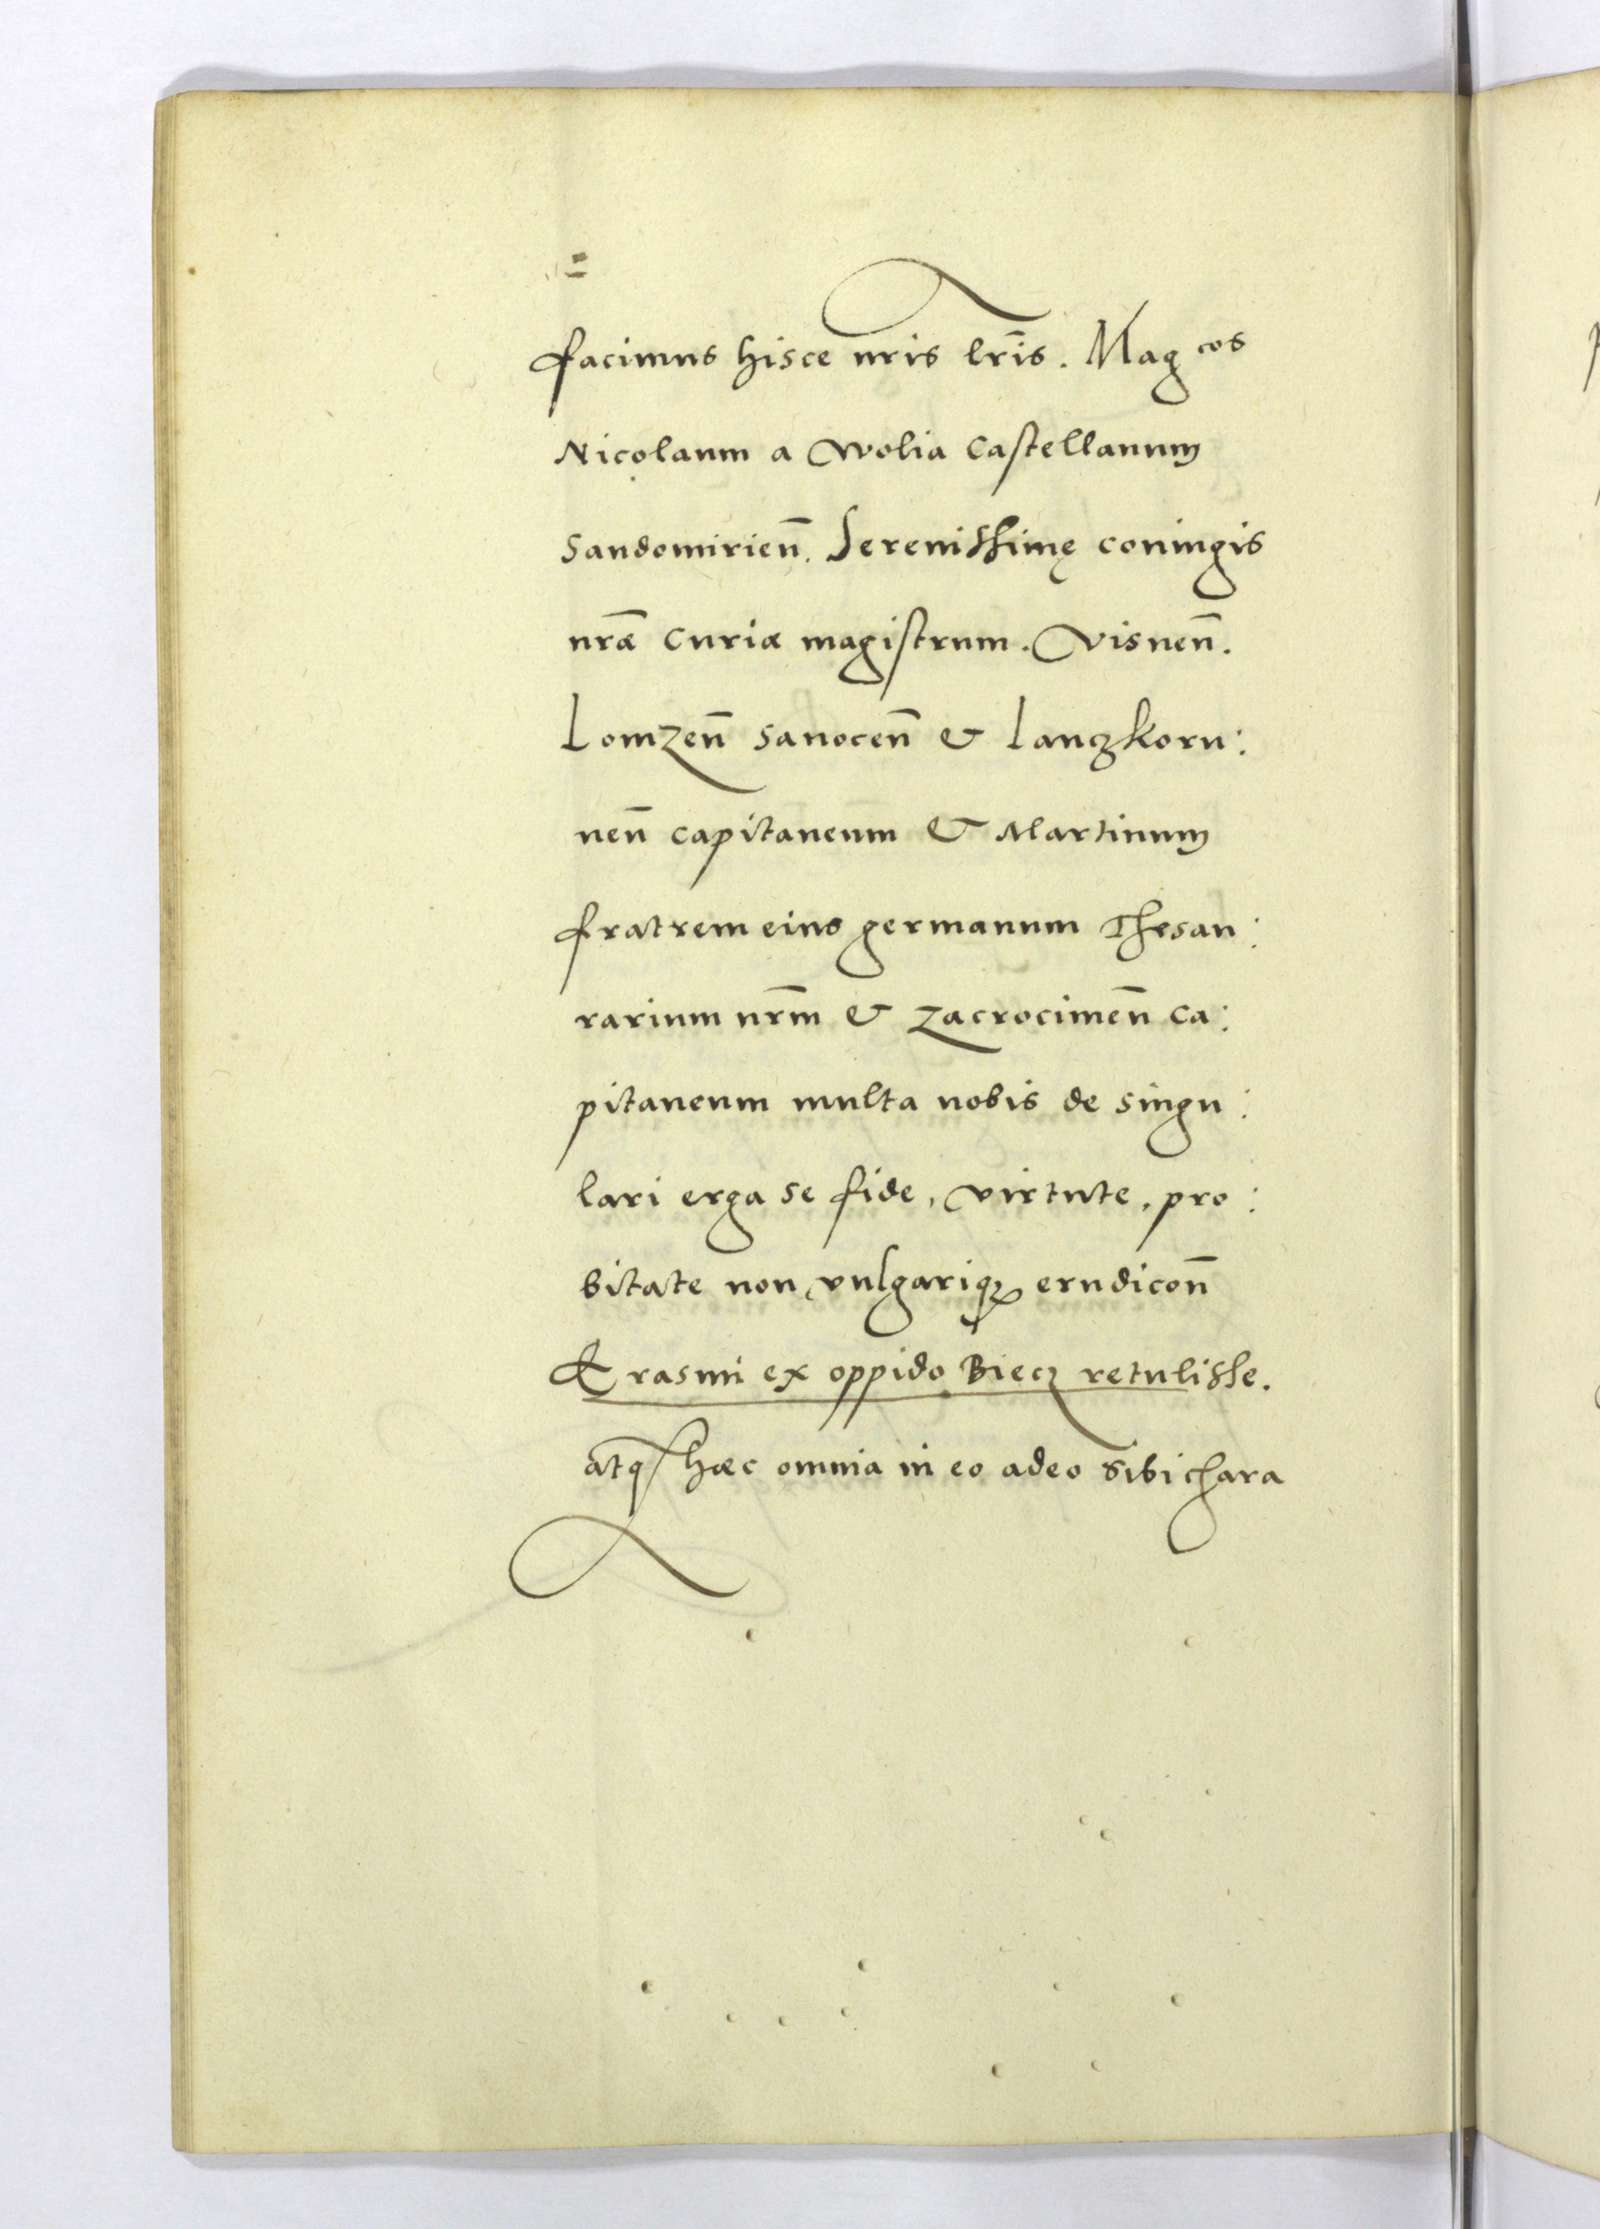 facimus hisce nris lr̃is. Magcos
Nicolaum a Wolia Castellanum
Sandomirien̄. Serenissimę coniugis
nræ̃ Curiæ magistrum. Visnen̄.
Lomzen̄ Sanocen̄ & Lanczkorn:
nen̄ capitaneum & Martinum
fratrem eius germanum Thesau:
rarium nr̃m & Zacrocimen̄ Ca:
pitaneum multa nobis de singu:
lari erga se fide, virtute, pro:
bitate non vulgariqȝ erudicon̄
Erasmi ex oppido Biecz retulisse.
atqȝ hæc omnia in eo adeo sibi chara